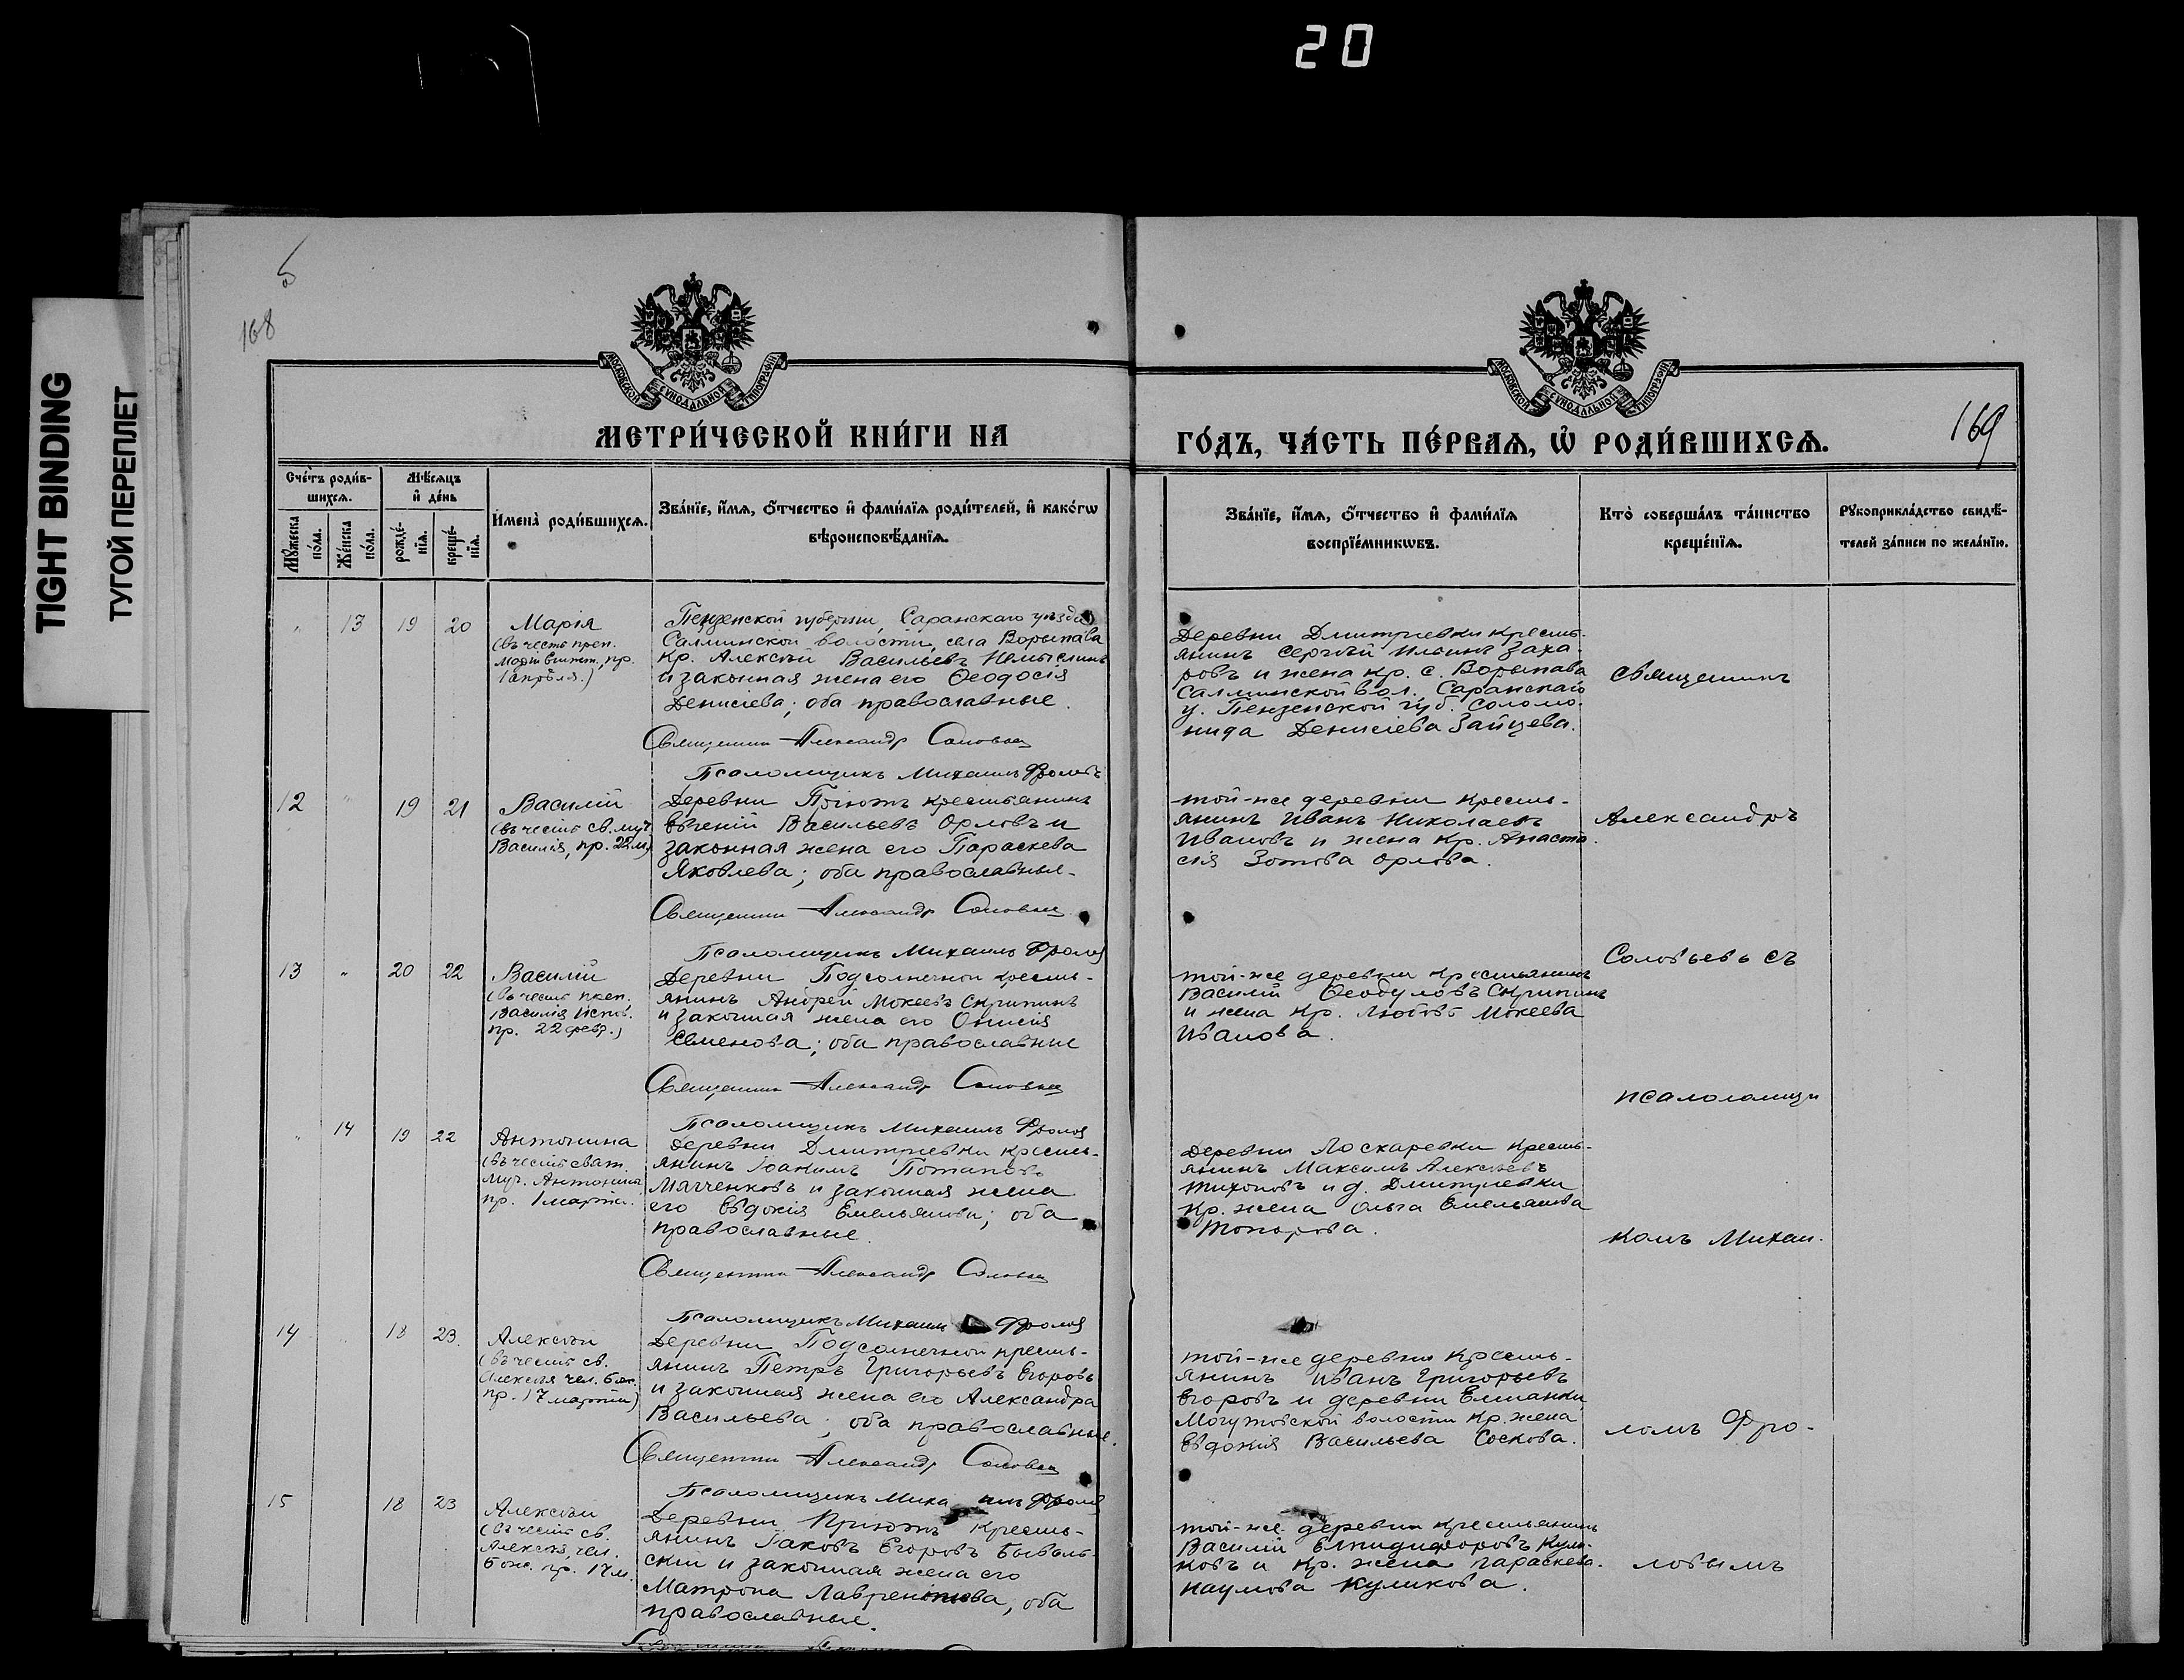 20
TIGHT BINDING
ТУГОЙ ПЕРЕПЛЕТ
5
168
169
МОСКОВСКОЙ СУНОДАЛЬНОЙ ТИПОГРАФІИ
МОСКОВСКОЙ СУНОДАЛЬНОЙ ТИПОГРАФІИ
МЕТРИ́ЧЕСКОЙ КНИ́ГИ НА
ГО́ДЪ, ЧА́СТЬ ПЕ́РВАѦ, Ѡ҆ РОДИ́ВШИХСѦ.
Сче́тъ роди́в-
шихсѧ.
Мꙋ́жеска по́ла.
Же́нска по́ла.
Мѣ́сѧцъ
и҆ де́нь
рожде́-
нїѧ.
креще́-
нїѧ.
И҆мена̀ роди́вшихсѧ.
Зва́нїе, и҆́мѧ, ѻ҆́тчество и҆ фами́лїѧ роди́телей, и҆ како́гѡ
вѣроисповѣ́данїѧ.
Зва́нїе, и҆́мѧ, ѻ҆́тчество и҆ фами́лїѧ
воспрїе́мникѡвъ.
Кто̀ соверша́лъ та́инство
креще́нїѧ.
Рꙋкоприкла́дство свидѣ́-
телей за́писи по жела́нїю.
" 13 19 20
Марія
(въ честь преп.
Маріи Египет., пр.
1 апрѣля.)
Пензенской губерніи, Саранскаго уѣзда
Салминской волости, села Ворыпаева
кр. Алексѣй Васильевъ Немыслинъ
и законная жена его Ѳеодосія
Денисіева; оба православные.
Священникъ Александръ Соловьев
Псаломщикъ Михаилъ Фроловъ
Деревни Дмитріевки кресть-
янинъ Сергѣй Ильинъ Заха-
ровъ и жена кр. с. Ворыпаева
Салминской вол., Саранскаго
у. Пензенской губ. Соломо-
нида Денисіева Зайцева.
Священникъ
12 " 19 21
Василій
(въ честь св. муч.
Василія, пр. 22 м.)
Деревни Пріютъ крестьянинъ
Евгеній Васильевъ Орловъ и
законная жена его Параскева
Яковлева; оба православныя.
Священникъ Александръ Соловьев
Псаломщикъ Михаилъ Фролов
той-же деревни кресть-
янинъ Иванъ Николаевъ
Ивановъ и жена кр. Анаста-
сія Зотова Орлова.
Александръ
13 " 20 22
Василій
(въ честь преп.
Василія Испов.
пр. 22 февр.)
Деревни Подсолнечной кресть-
янинъ Андрей Мокеевъ Скрипинъ
и законная жена его Онисія
Семенова; оба православные
Священникъ Александръ Соловьев
Псаломщикъ Михаилъ Фролов
той-же деревни крестьянинъ
Василій Ѳеодуловъ Скрипинъ
и жена кр. Любовь Мокеева
Иванова.
Соловьевъ съ
псаломщи
" 14 19 22
Антонина
(въ честь свят.
муч. Антонины
пр. 1 марта.
Деревни Дмитріевки кресть-
янинъ Іоакимъ Потаповъ
Мягченковъ и законная жена
его Евдокія Емельянова; оба
православные.
Священникъ Александръ Соловьев
Псаломщикъ Михаилъ Фролов
Деревни Лоскаревки кресть-
янинъ Максимъ Алексѣевъ
Тихоновъ и д. Дмитріевки
кр. жена Ольга Емельянова
Топорова.
комъ Михаи-
14 18 23
Алексѣй
(въ честь св.
Алексія чел. Бож.
пр. 17 марта)
Деревни Подсолнечной кресть-
янинъ Петръ Григорьевъ Егоровъ
и законная жена его Александра
Васильева; оба православные.
Священникъ Александръ Соловьев
Псаломщикъ Михаилъ Фролов
той-же деревни кресть-
янинъ Иванъ Григорьевъ
Егоровъ и деревни Елшанки,
Могутовской волости кр. жена
Евдокія Васильева Соскова.
ломъ Фро-
15 18 23
Алексѣй
(въ честь св.
Алексія, чел.
Бож. пр. 17 м.
Деревни Пріютъ кресть-
янинъ Іаковъ Егоровъ
скій и законная жена его
Матрона Лаврентіева, оба
православные.
той-же деревни крестьянинъ
Василій Елпидифоровъ Кули-
ковъ и кр. жена Параскева
Наумова Куликова.
ловымъ